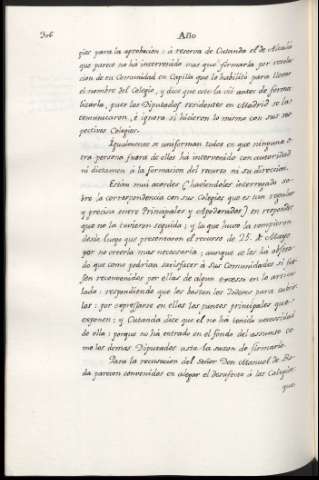 306 Año
gios para la aprobacion: á reserva de Cutanda el de Alcalá
que parece no há intervenido mas que formarla por resolu-
cion de su Comunidad en Capilla que lo habilitó para llevar
el nombre del Colegio, y dice que este la vió antes de forma-
lizarla, pues los Diputados residentes en Madrid se la co-
municaron, é ignora si hicieron lo mismo con sus res-
pectivos Colegios.
Igualmente se uniforman todos en que ninguna o-
tra persona fuera de ellos há intervenido con autoridad
ni dictamen á la formacion del recurso ni su direccion.
Están mui acordes (haviendoles interrogado so-
bre la correspondencia con sus Colegios que es tan regular
y precisa entre Principales y Apoderados) en responder
que no la tuvieron seguida; y la que huvo la rompieron
desde luego que presentaron el recurso de 15. de Mayo
por no creerla mas necesaria; aunque se les há obser-
do que como podrian satisfacer á sus Comunidades si fue-
sen reconvenidos por ellas de algun exceso en lo articu-
lado: respondiendo que les bastan los Poderes para cubrir-
los: por expresarse en ellos los puntos principales que
exponen; y Cutanda dice que él no há tenido necesidad
de ella: porque no há entrado en el fondo del assunto co-
mo los demas Diputados usta la razon de firmarlo.
Para la recusacion del Señor Don Manuel de Ro-
da parecen convenidos en alegar el desafecto á los Colegios
que